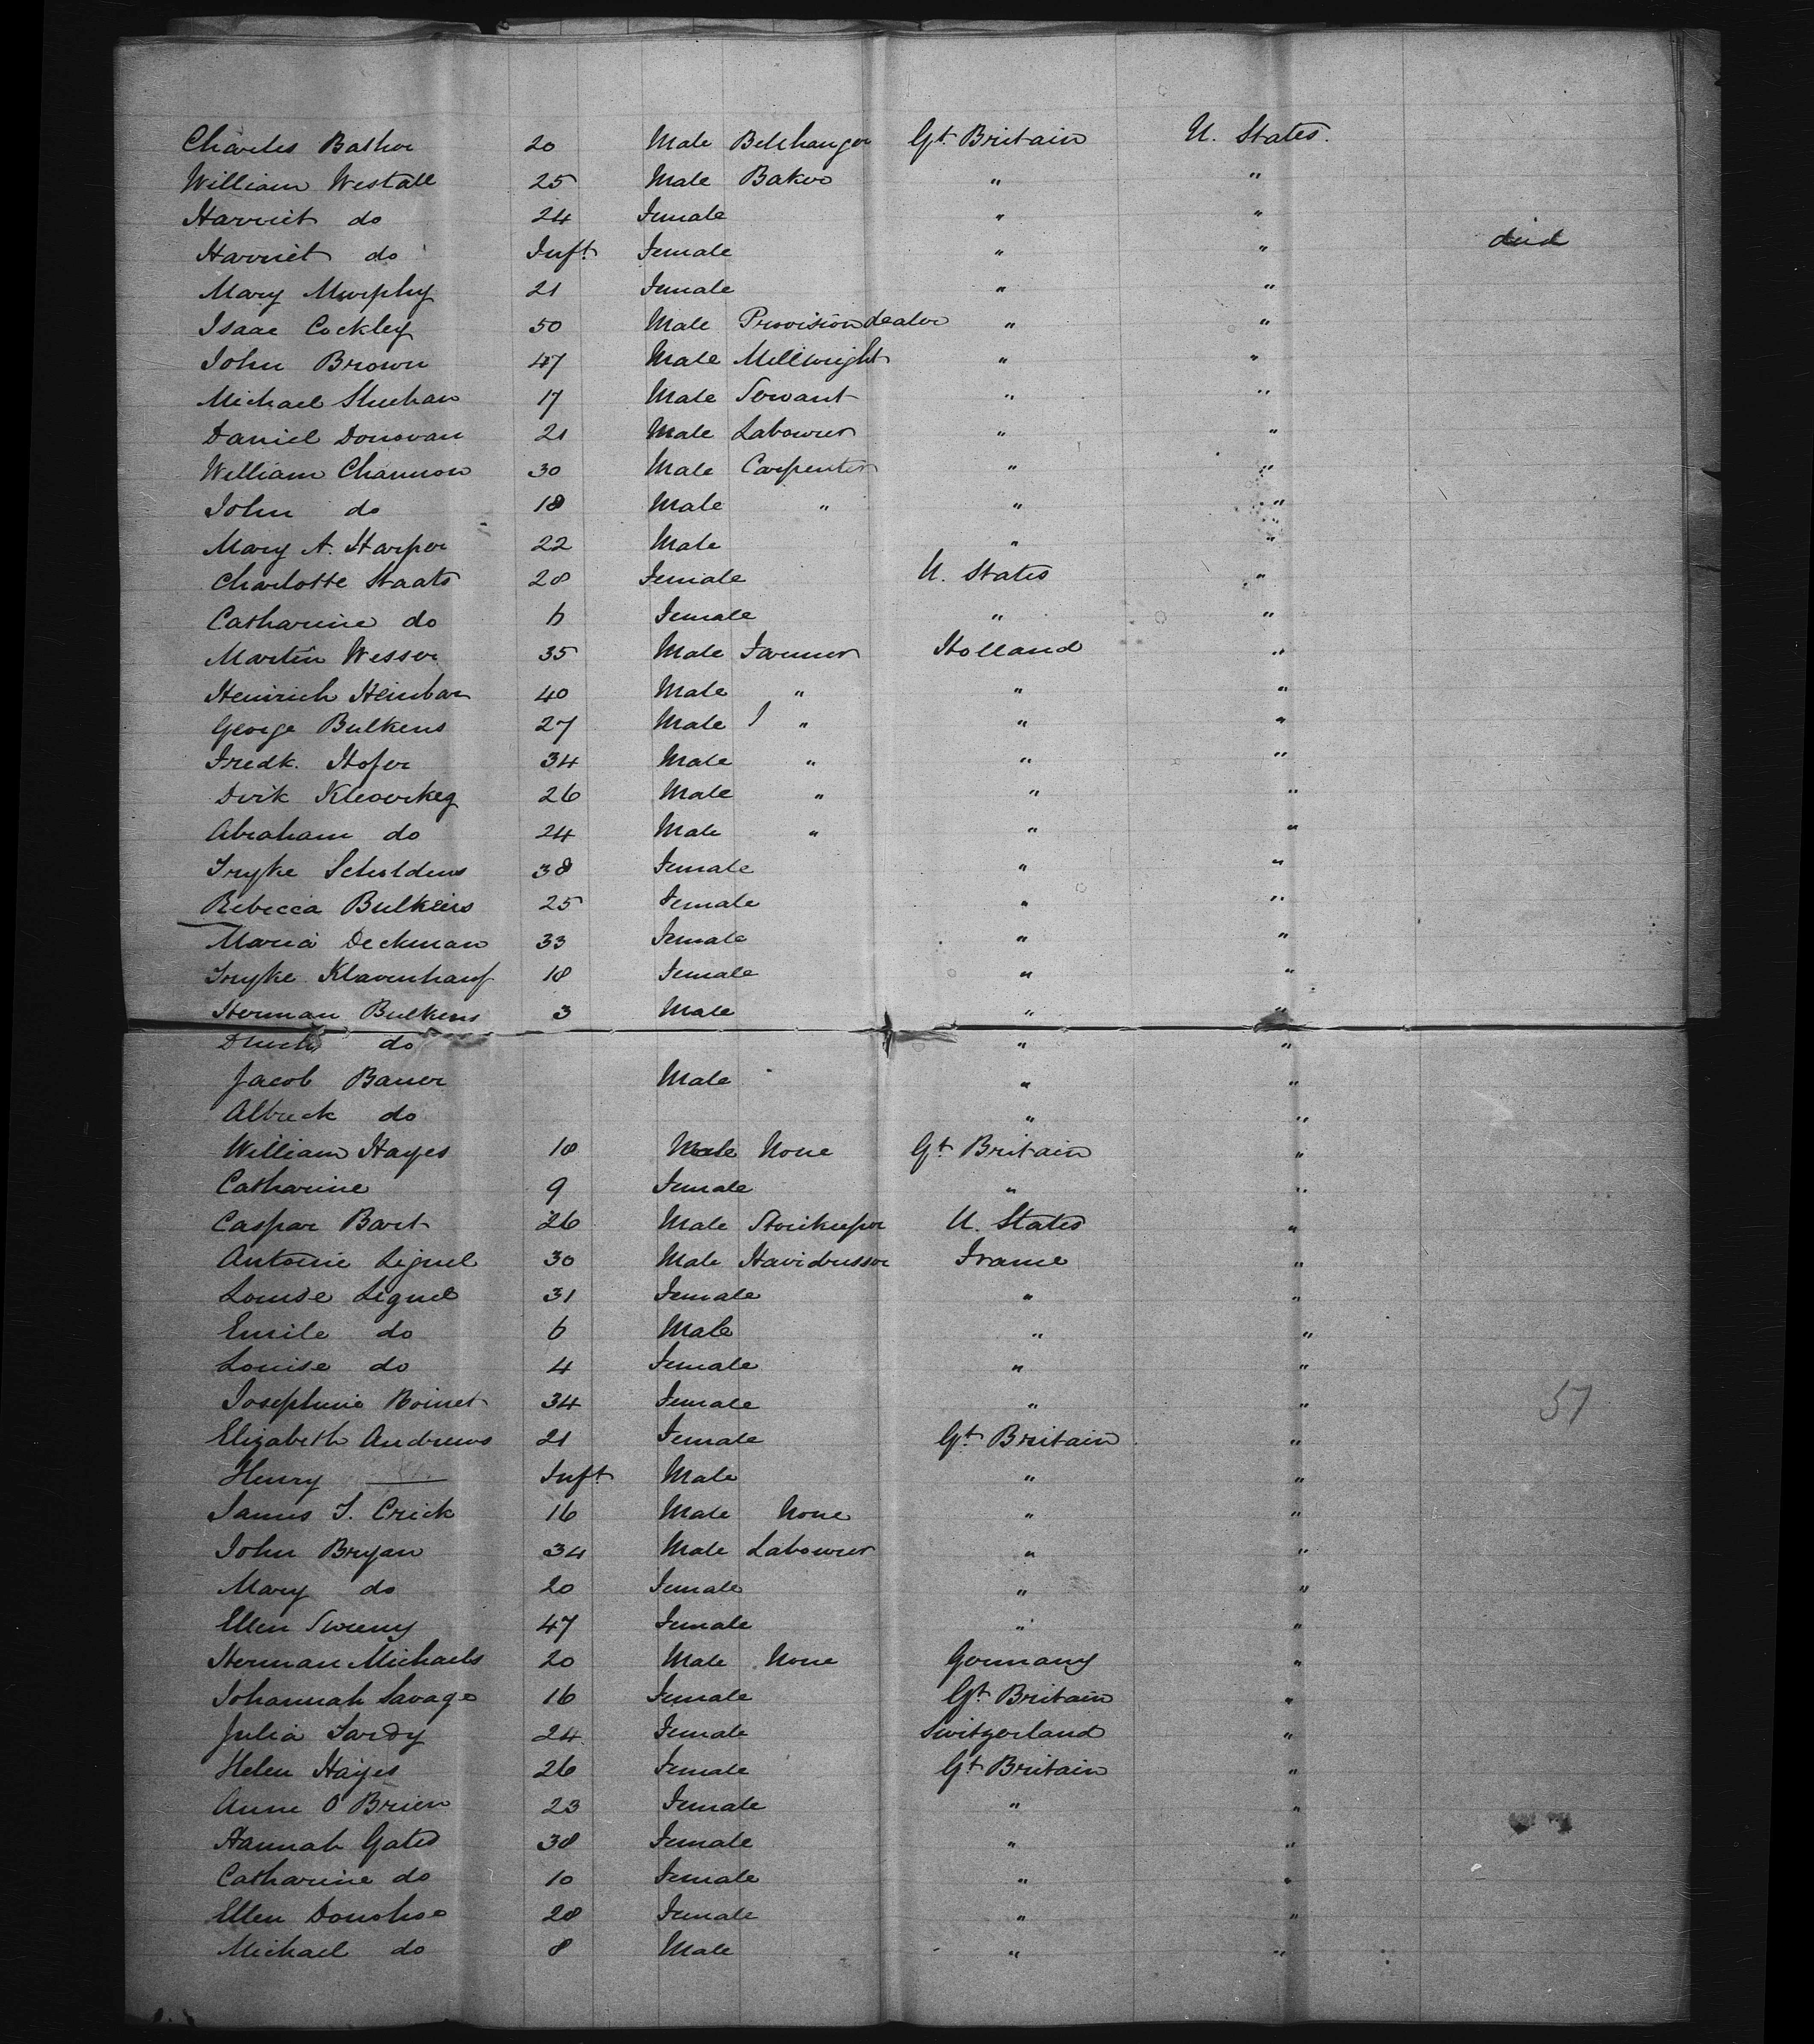 Charles Bather 20 Male Bellhanger Gt. Britain U. States.
William Westall 25 Male Baker " "
Harriet do 24 Female " "
Harriet do Inft. Female " " died
Mary Murphy 21 Female " "
Isaac Cockley 50 Male Provision dealer " "
John Brown 47 Male Millwright " "
Michael Sheehan 17 Male Servant " "
Daniel Donovan 21 Male Labourer " "
William Channon 30 Male Carpenter " "
John do 18 Male " " "
Mary A. Harper 22 Male " "
Charlotte Staats 28 Female U. States "
Catharine do 6 Female " "
Martin Wesser 35 Male Farmer Holland "
Heinrich 40 Male " " "
George Bulkens 27 Male " " "
Fredk. Hofer 34 Male " " "
Dirk 26 Male " " "
Abraham do 24 Male " " "
Tryke Scholdens 38 Female " "
Rebecca Bulkens 25 Female " "
Maria Deckman 33 Female " "
Tryke 18 Female " "
Herman Bulkens 3 Male " "
do " "
Jacob Bauer Male " "
Albreck do " "
William Hayes 18 Male None Gt. Britain "
Catharine 9 Female " "
Caspar Bart 26 Male Storekeeper U. States "
Antoine Lignel 30 Male Hairdresser France "
Louise Lignel 31 Female " "
Emile do 6 Male " "
Louise do 4 Female " "
Josephine Boinet 34 Female " " 57
Elizabeth Andrews 21 Female Gt. Britain "
Henry —— Inft. Male " "
James T. Crick 16 Male None " "
John Bryan 34 Male Labourer " "
Mary do 20 Female " "
Ellen Sweeny 47 Female " "
Herman Michaels 20 Male None Germany "
Johannah Savage 16 Female Gt. Britain "
Julia Tardy 24 Female Switzerland "
Helen Hayes 26 Female Gt. Britain "
Anne O'Brien 23 Female " "
Hannah Gates 38 Female " "
Catharine do 10 Female " "
Ellen Donohoe 28 Female " "
Michael do 8 Male " "